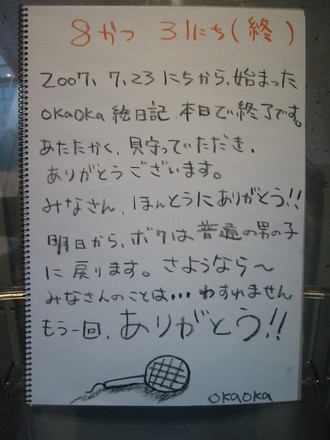 8がつ 31にち(終)
2007、7、23にちから、始まった
okaoka絵日記、本日で終了です。
あたたかく、見守っていただき、
ありがとうございます。
みなさん、ほんとうにありがとう!!
明日から、ボクは普通の男の子
に戻ります。さようなら〜
みなさんのことは…わすれません
もう一回、ありがとう!!
okaoka